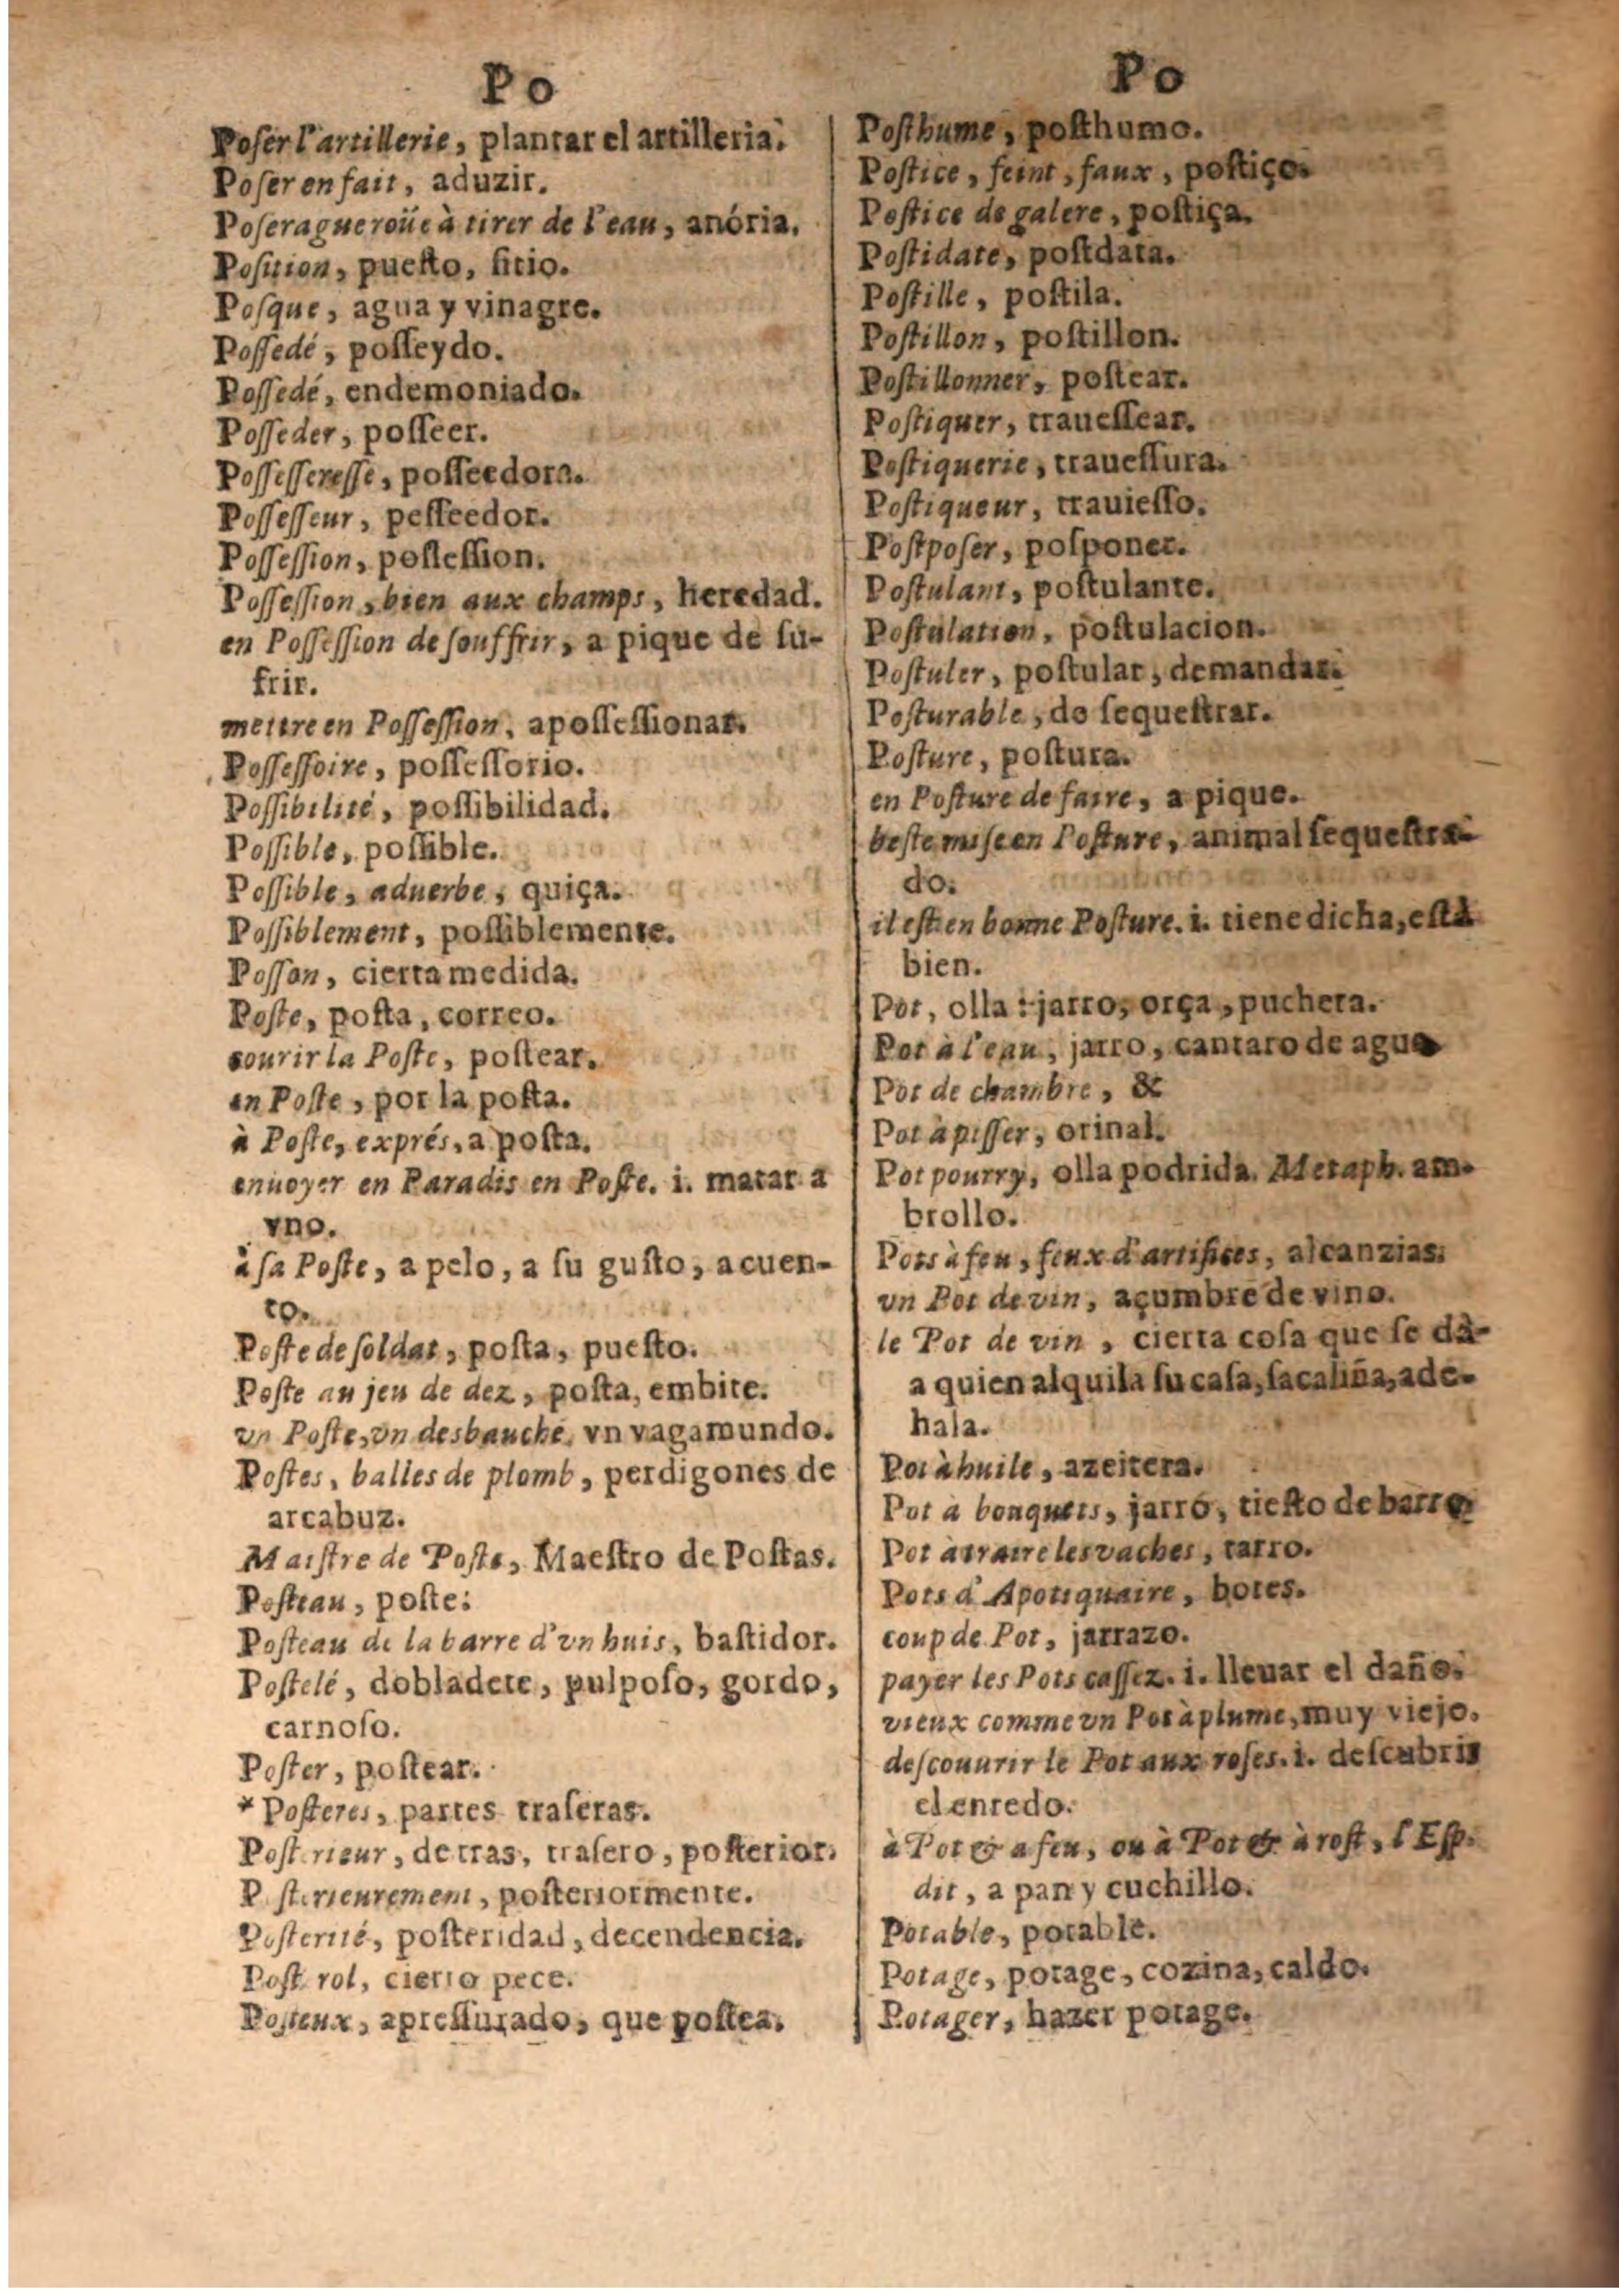 Po
Poſer l'artillerie, plantar el artilleria.
Poſer en fait, aduzir.
Poſeragueroüe à tirer de l'eau, anória.
Poſition, pueſto, ſitio.
Poſque, agua y vinagre.
Poſſedé, poſſeydo.
Poſſedé, endemoniado.
Poſſeder, poſſeer.
Poſſeſſereſſe, poſſeedora.
Poſſeſſeur, peſſeedor.
Poſſeſſion, poſſeſſion.
Poſſeſſion, bien aux champs, heredad.
en Poſſeſſion de ſouffrir, a pique de ſu-
frir.
mettre en Poſſeſſion, apoſſeſſionar.
Poſſeſſoire, poſſeſſorio.
Poſſibilité, poſſibilidad.
Poſſible, poſſible.
Poſſible, aduerbe, quiça.
Poſſiblement, poſſiblemente.
Poſſon, cierta medida.
Poſte, poſta, correo.
courir la Poſte, poſtear.
en Poſte, por la poſta.
à Poſte, exprés, a poſta.
enuoyer en Paradis en Poſte. i. matar a
vno.
à ſa Poſte, a pelo, a ſu guſto, a cuen-
to.
Poſte de ſoldat, poſta, pueſto.
Poſte au jeu de dez, poſta, embite.
vn Poſte, vn desbauché, vn vagamundo.
Poſtes, balles de plomb, perdigones de
arcabuz.
Maiſtre de Poſte, Maeſtro de Poſtas.
Poſteau, poſte.
Poſteau de la barre d'vn huis, baſtidor.
Poſtelé, dobladete, pulpoſo, gordo,
carnoſo.
Poſter, poſtear.
*Poſteres, partes traſeras.
Poſt rieur, detras, traſero, poſterior.
P ſterieurement, poſteriormente.
Poſterité, poſteridad, decendencia.
Poſt rol, cierto pece.
Poſteux, apreſſurado, que poſtea.
Po
Poſthume, poſthumo.
Poſtice, feint, faux, poſtiço.
Poſtice de galere, poſtiça.
Poſtidate, poſtdata.
Poſtille, poſtila.
Poſtillon, poſtillon.
Poſtillonner, poſtear.
Poſtiquer, traueſſear.
Poſtiquerie, traueſſura.
Poſtiqueur, trauieſſo.
Poſtpoſer, poſponer.
Poſtulant, poſtulante.
Poſtulation, poſtulacion.
Poſtuler, poſtular, demandar.
Poſturable, de ſequeſtrar.
Poſture, poſtura.
en Poſture de faire, a pique.
beſte miſe en Poſture, animal ſequeſtra-
do.
il eſt en bonne Poſture. i. tiene dicha, eſtà
bien.
Pot, olla: jarro, orça, puchera.
Pot à l'eau, jarro, cantaro de agua
Pot de chambre, &
Pot à piſſer, orinal.
Pot pourry, olla podrida. Metaph. am-
brollo.
Pots à feu, feux d'artifices, alcanzias.
vn Pot de vin, açumbre de vino.
le Pot de vin, cierta coſa que ſe dà-
a quien alquila ſu caſa, ſacaliña, ade-
hala.
Pot à huile, azeitera.
Pot à bouquets, jarró, tieſto de barro
Pot à traire les vaches, tarro.
Pots d'Apotiquaire, botes.
coup de Pot, jarrazo.
payer les Pots caſſez. i. lleuar el daño.
vieux comme vn Pot à plume, muy viejo.
deſcouurir le Pot aux roſes. i. deſcubrir
el enredo.
à Pot & a feu, ou à Pot & à roſt, l'Eſp.
dit, a pan y cuchillo.
Potable, potable.
Potage, potage, cozina, caldo.
Potager, hazer potage.